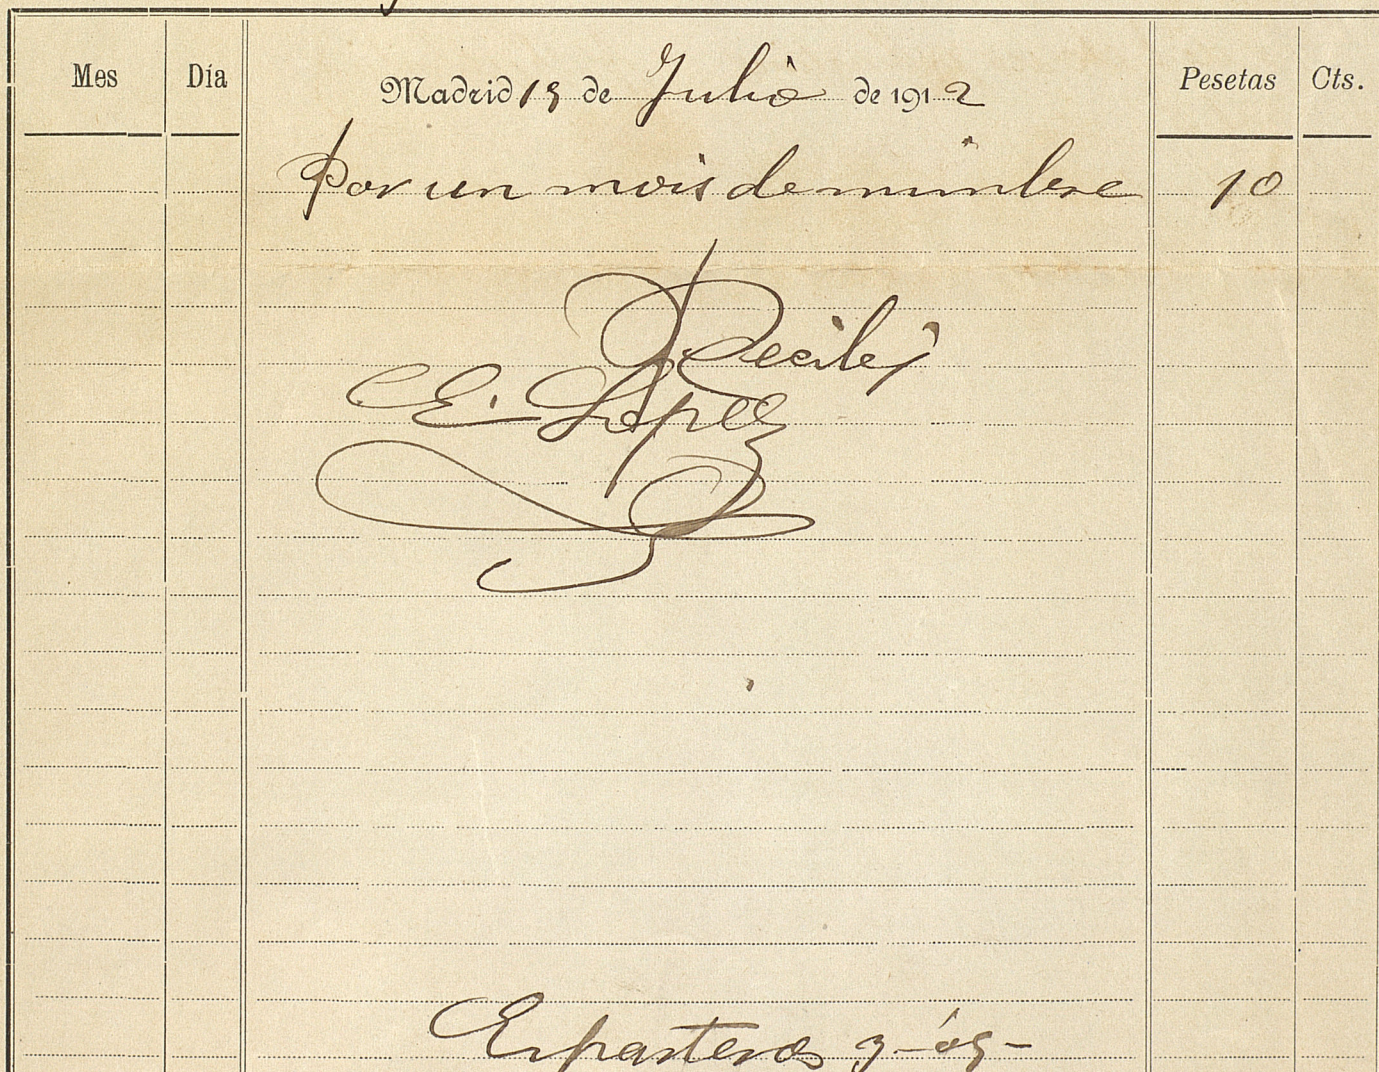 Mes Día Madrid 15 de Julio de 1912 Pesetas Cts.
Por un mois de mimbre 10
Recibí
E. Lopez
Esparteros